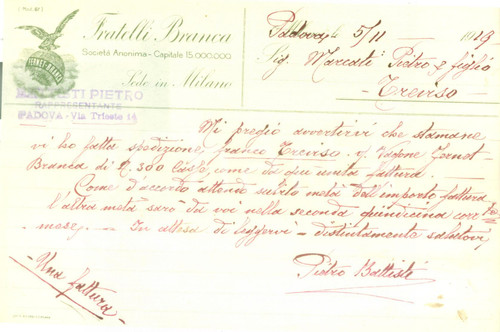 Fratelli Branca
Società Anonima - Capitale 15.000.000
Sede in Milano
FERNET-BRANCA
PIETRO
RAPPRESENTANTE
PADOVA - Via Trieste 14
Padova, 5/11 1919
Sig. Marcati Pietro e figlio
Treviso
Mi pregio avvertirvi che stamane
vi ho fatto spedizione franco Treviso Vagone Fernet-
Branca di N. 300 Casse, come da qui unita fattura.
Come d'accordo attendo subito metà dell'importo fattura
l'altra metà sarà da voi nella seconda quindicina corr.
mese. - In attesa di leggervi - distintamente salutovi,
Pietro Battisti
Una fattura